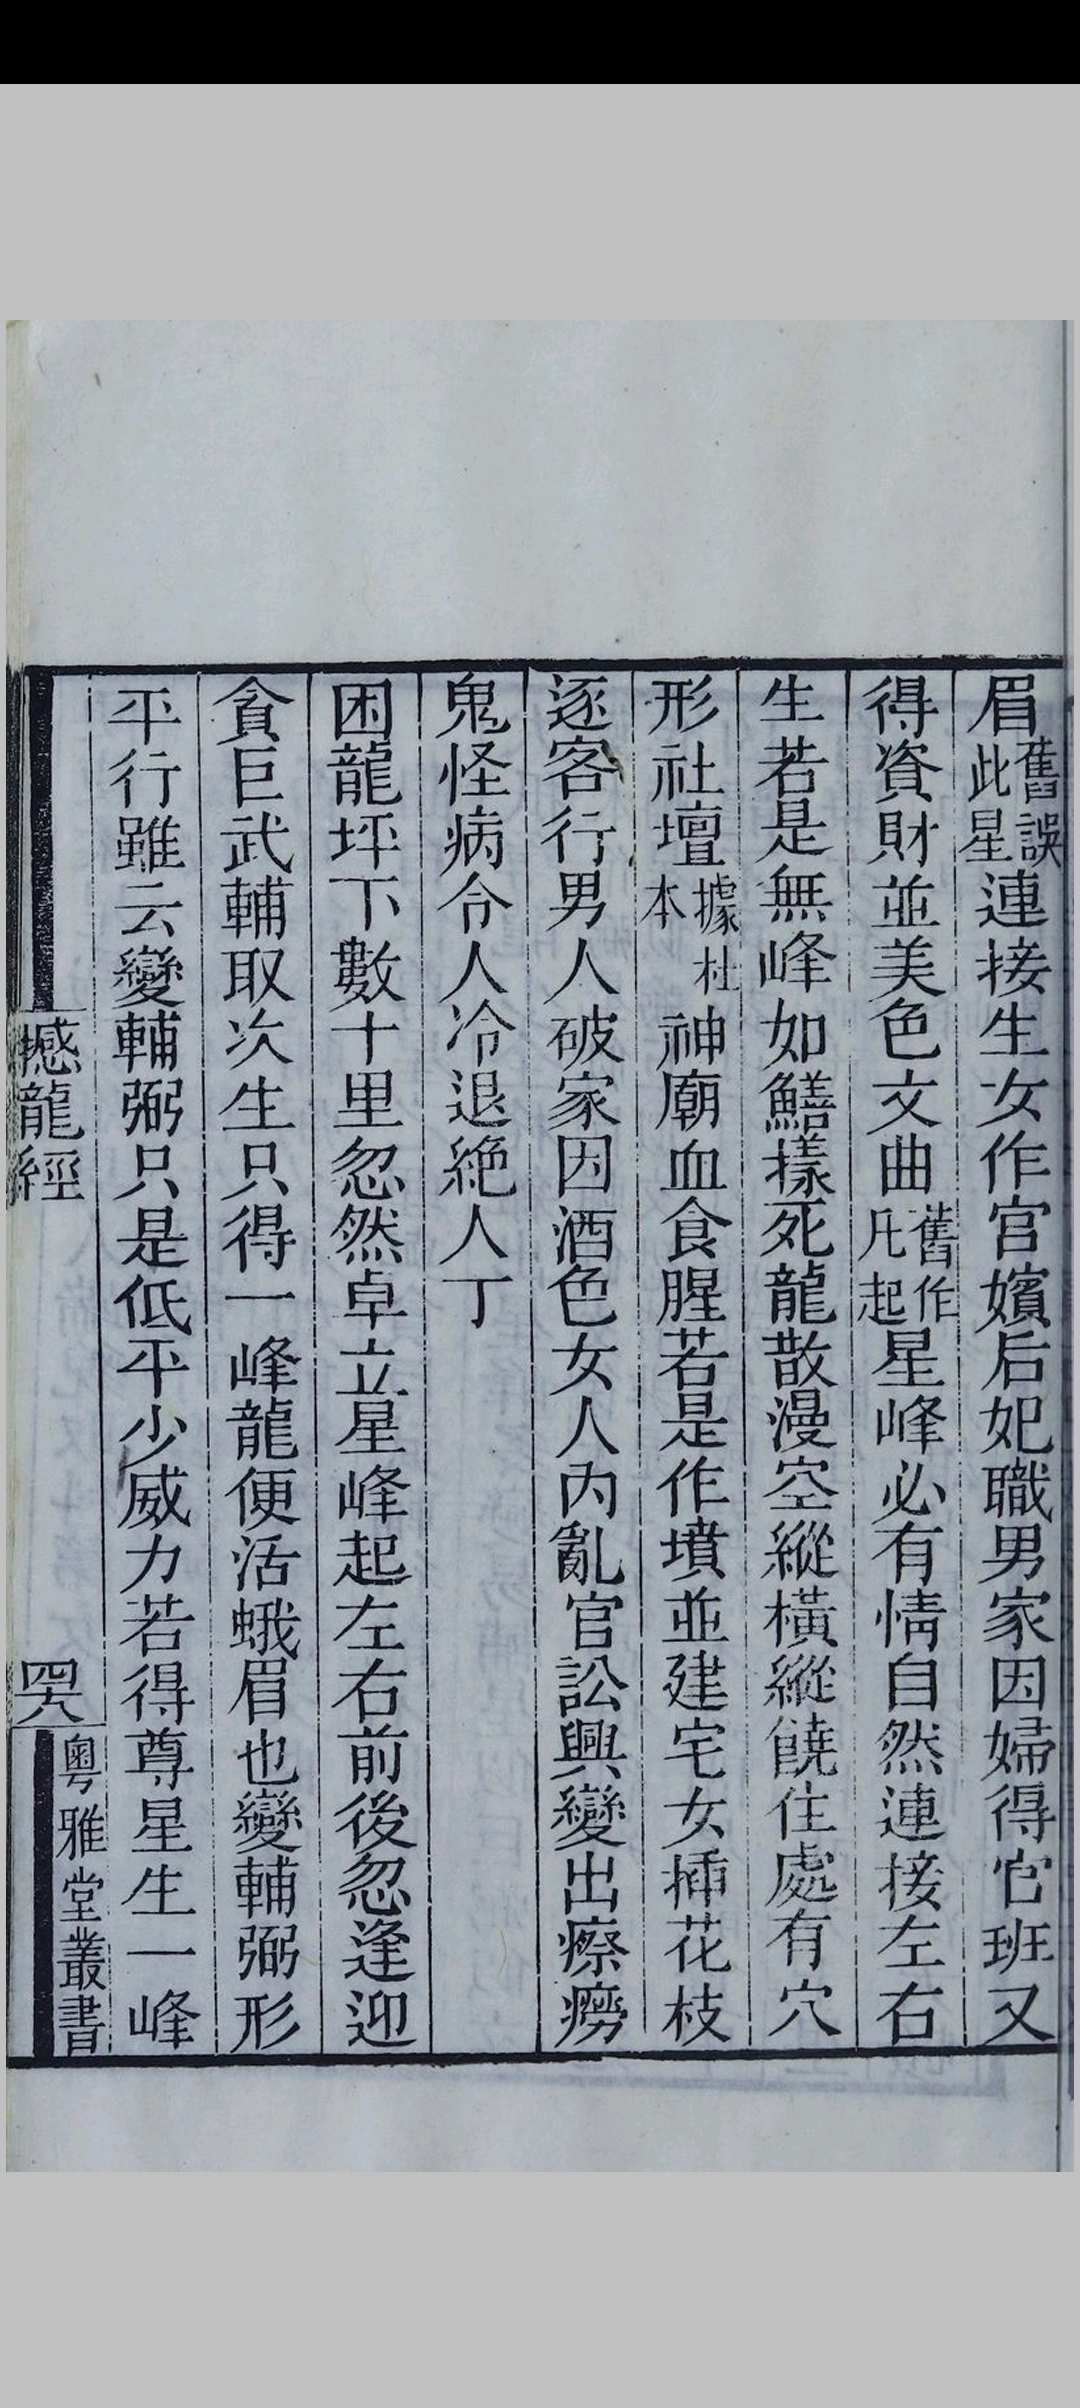 眉舊誤此星連接生女作宫嬪后妃職男家因婦得官班又
得資財並美色文曲舊作凡起星峰必有情自然連接左右
生若是無峰如鱔樣死龍散漫空縱橫縱饒住處有穴
形社壇據杜本神廟血食腥若是作墳並建宅女插花枝
逐客行男人破家因酒色女人內亂官訟興變出瘵癆
鬼怪病令人冷退絶人丁
困龍坪下數十里忽然卓立星峰起左右前後忽逢迎
貪巨武輔取次生只得一峰龍便活蛾眉也變輔弼形
平行雖云變輔弼只是低平少威力若得尊星生一峰
撼龍經
四八
粵雅堂叢書